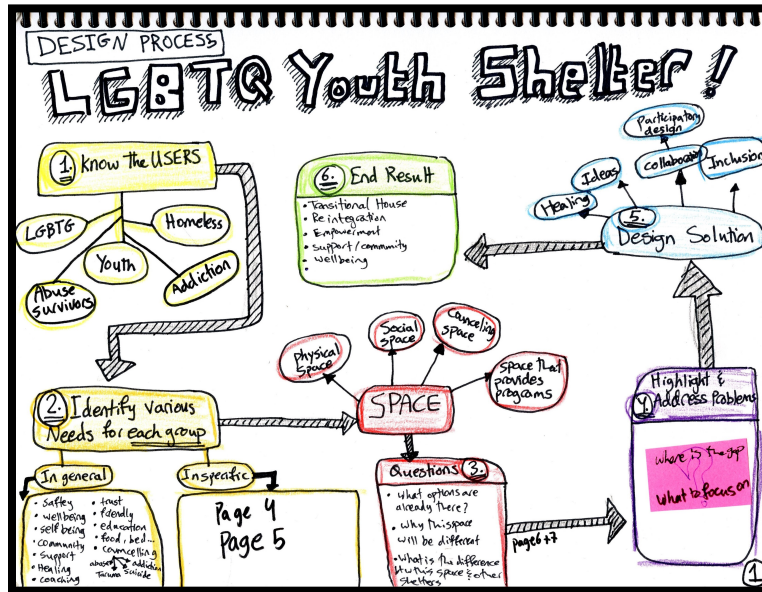 DESIGN PROCESS
LGBTQ Youth Shelter!
1. Know the USERS
LGBTG
Homeless
Youth
Abuse
survivors
Addiction
2. Identify Various
Needs for each group
In general
In specific
• Saftey
• wellbeing
• self being
• community
• Support
• Healing
• coaching
• trust
• friendly
• education
• food, bed...
• councelling
abuse
addiction
Taruma
Suicide
Page 4
Page 5
SPACE
physical
space
Social
space
Counceling
space
space that
provides
programs
Questions 3.
• What options are
already there?
• Why this space
will be different
• What is the difference
btw this space & other
shelters
page 6+7
4. Highlight &
Address Problems
where is the gap
?
what to focus on
5.
Design Solution
Healing
Ideas
Collaboration
Participatory
design
Inclusion
6. End Result
• Transitional House
• Reintegration
• Empowerment
• Support/community
• Wellbeing
•
1